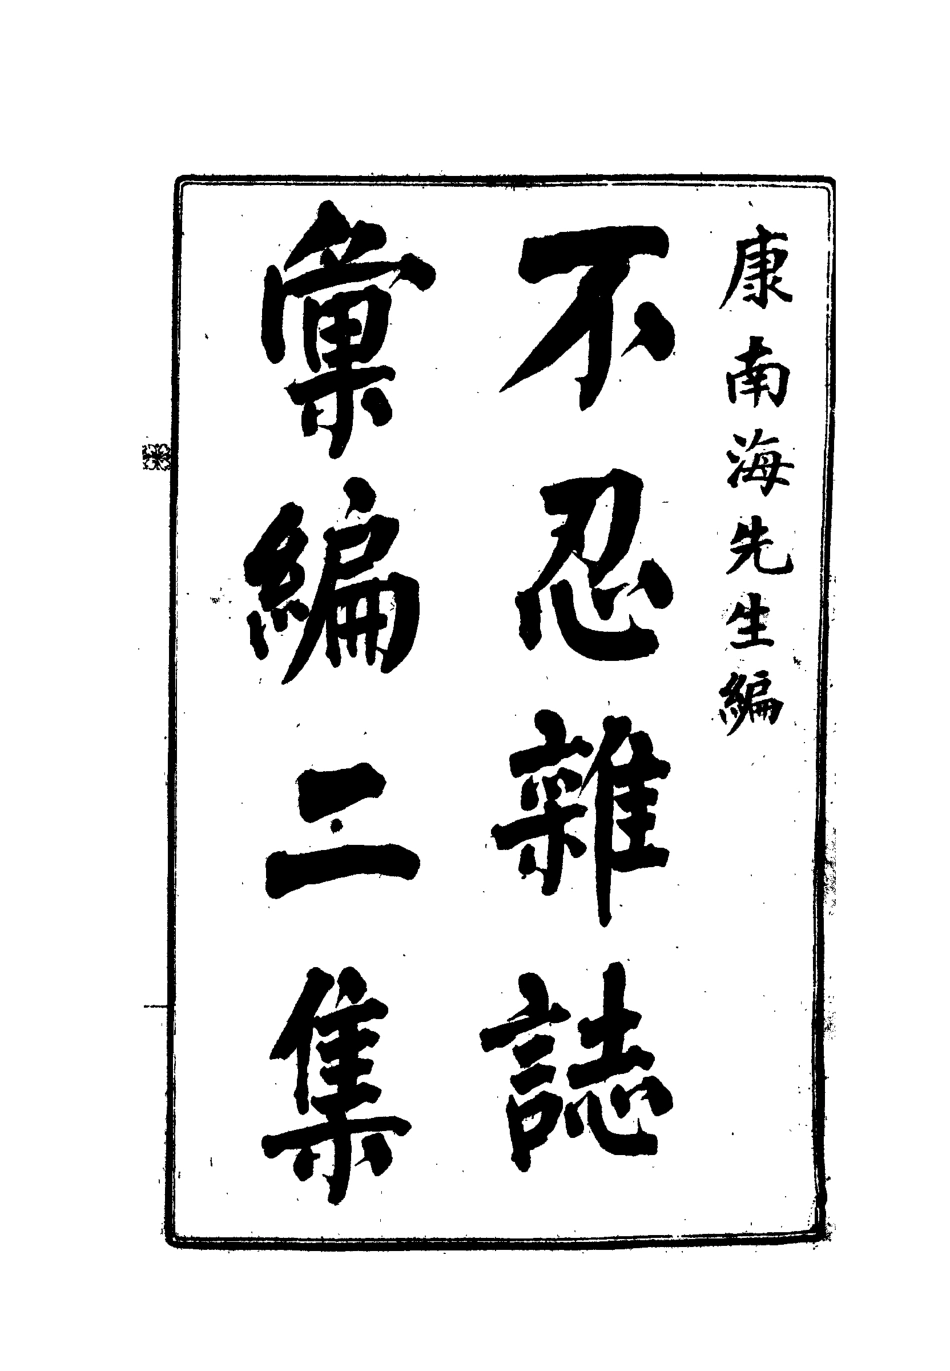 康南海先生編
不忍雜誌
彙編二集